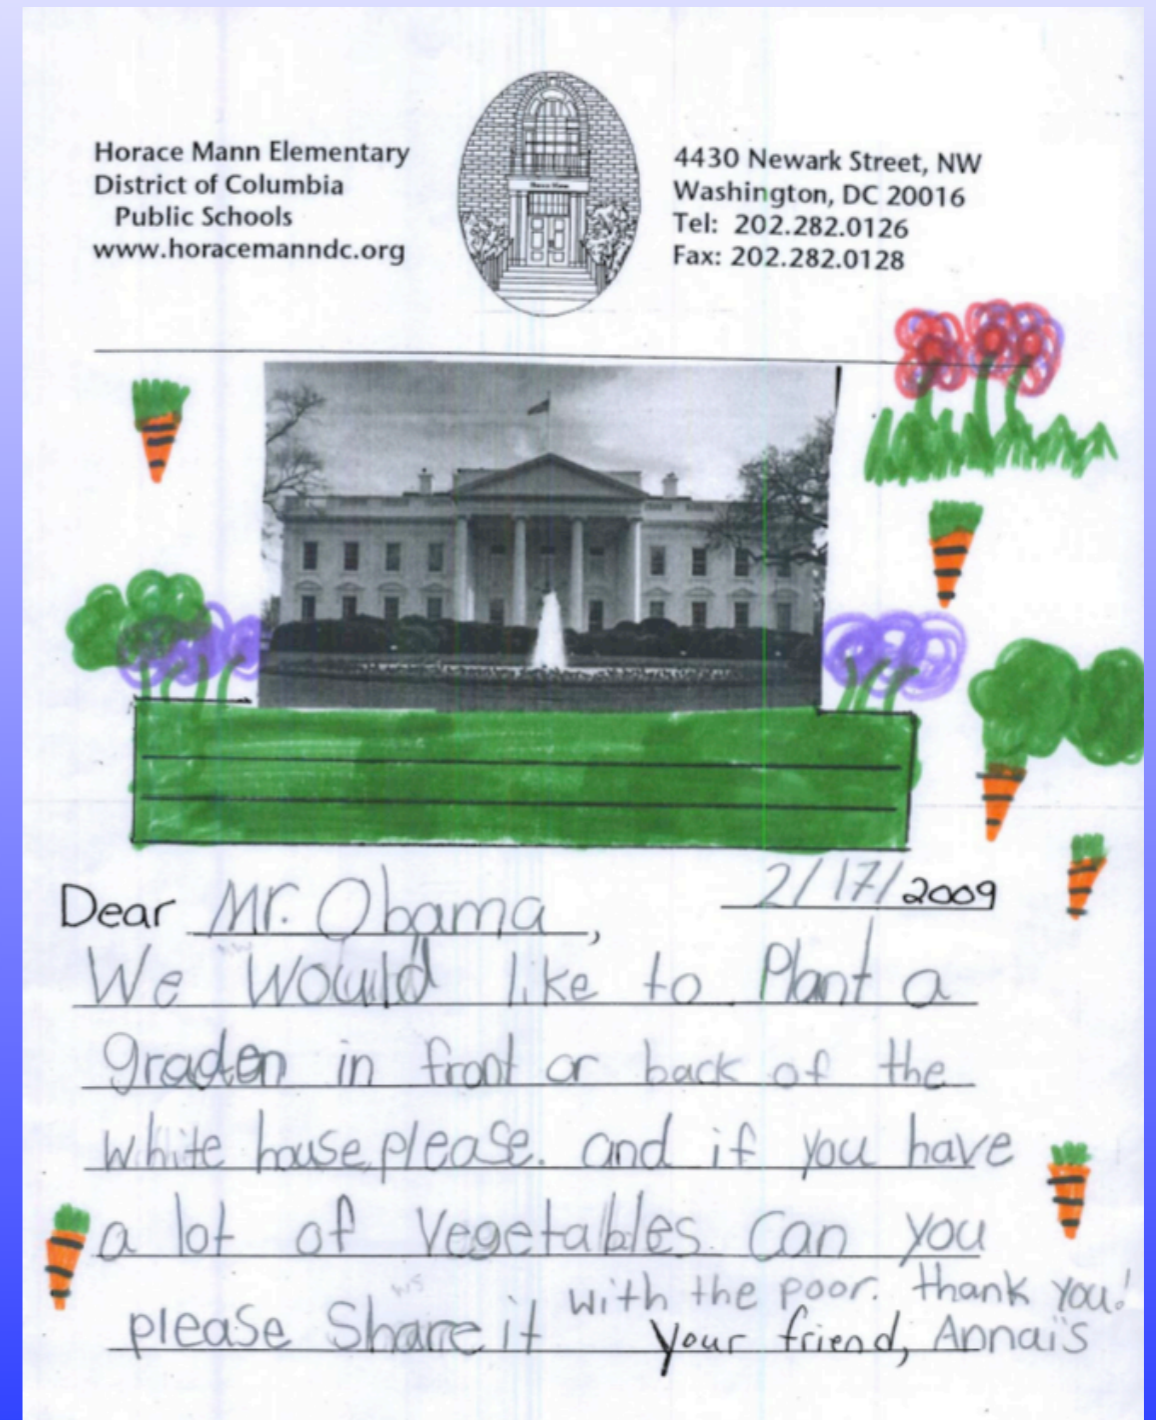 Horace Mann Elementary
District of Columbia
Public Schools
www.horacemanndc.org
4430 Newark Street, NW
Washington, DC 20016
Tel: 202.282.0126
Fax: 202.282.0128
2/17/2009
Dear Mr. Obama,
We would like to Plant a
graden in front or back of the
white house, please. and if you have
a lot of vegetables can you
please Share it with the poor. thank you!
your friend, Annaïs